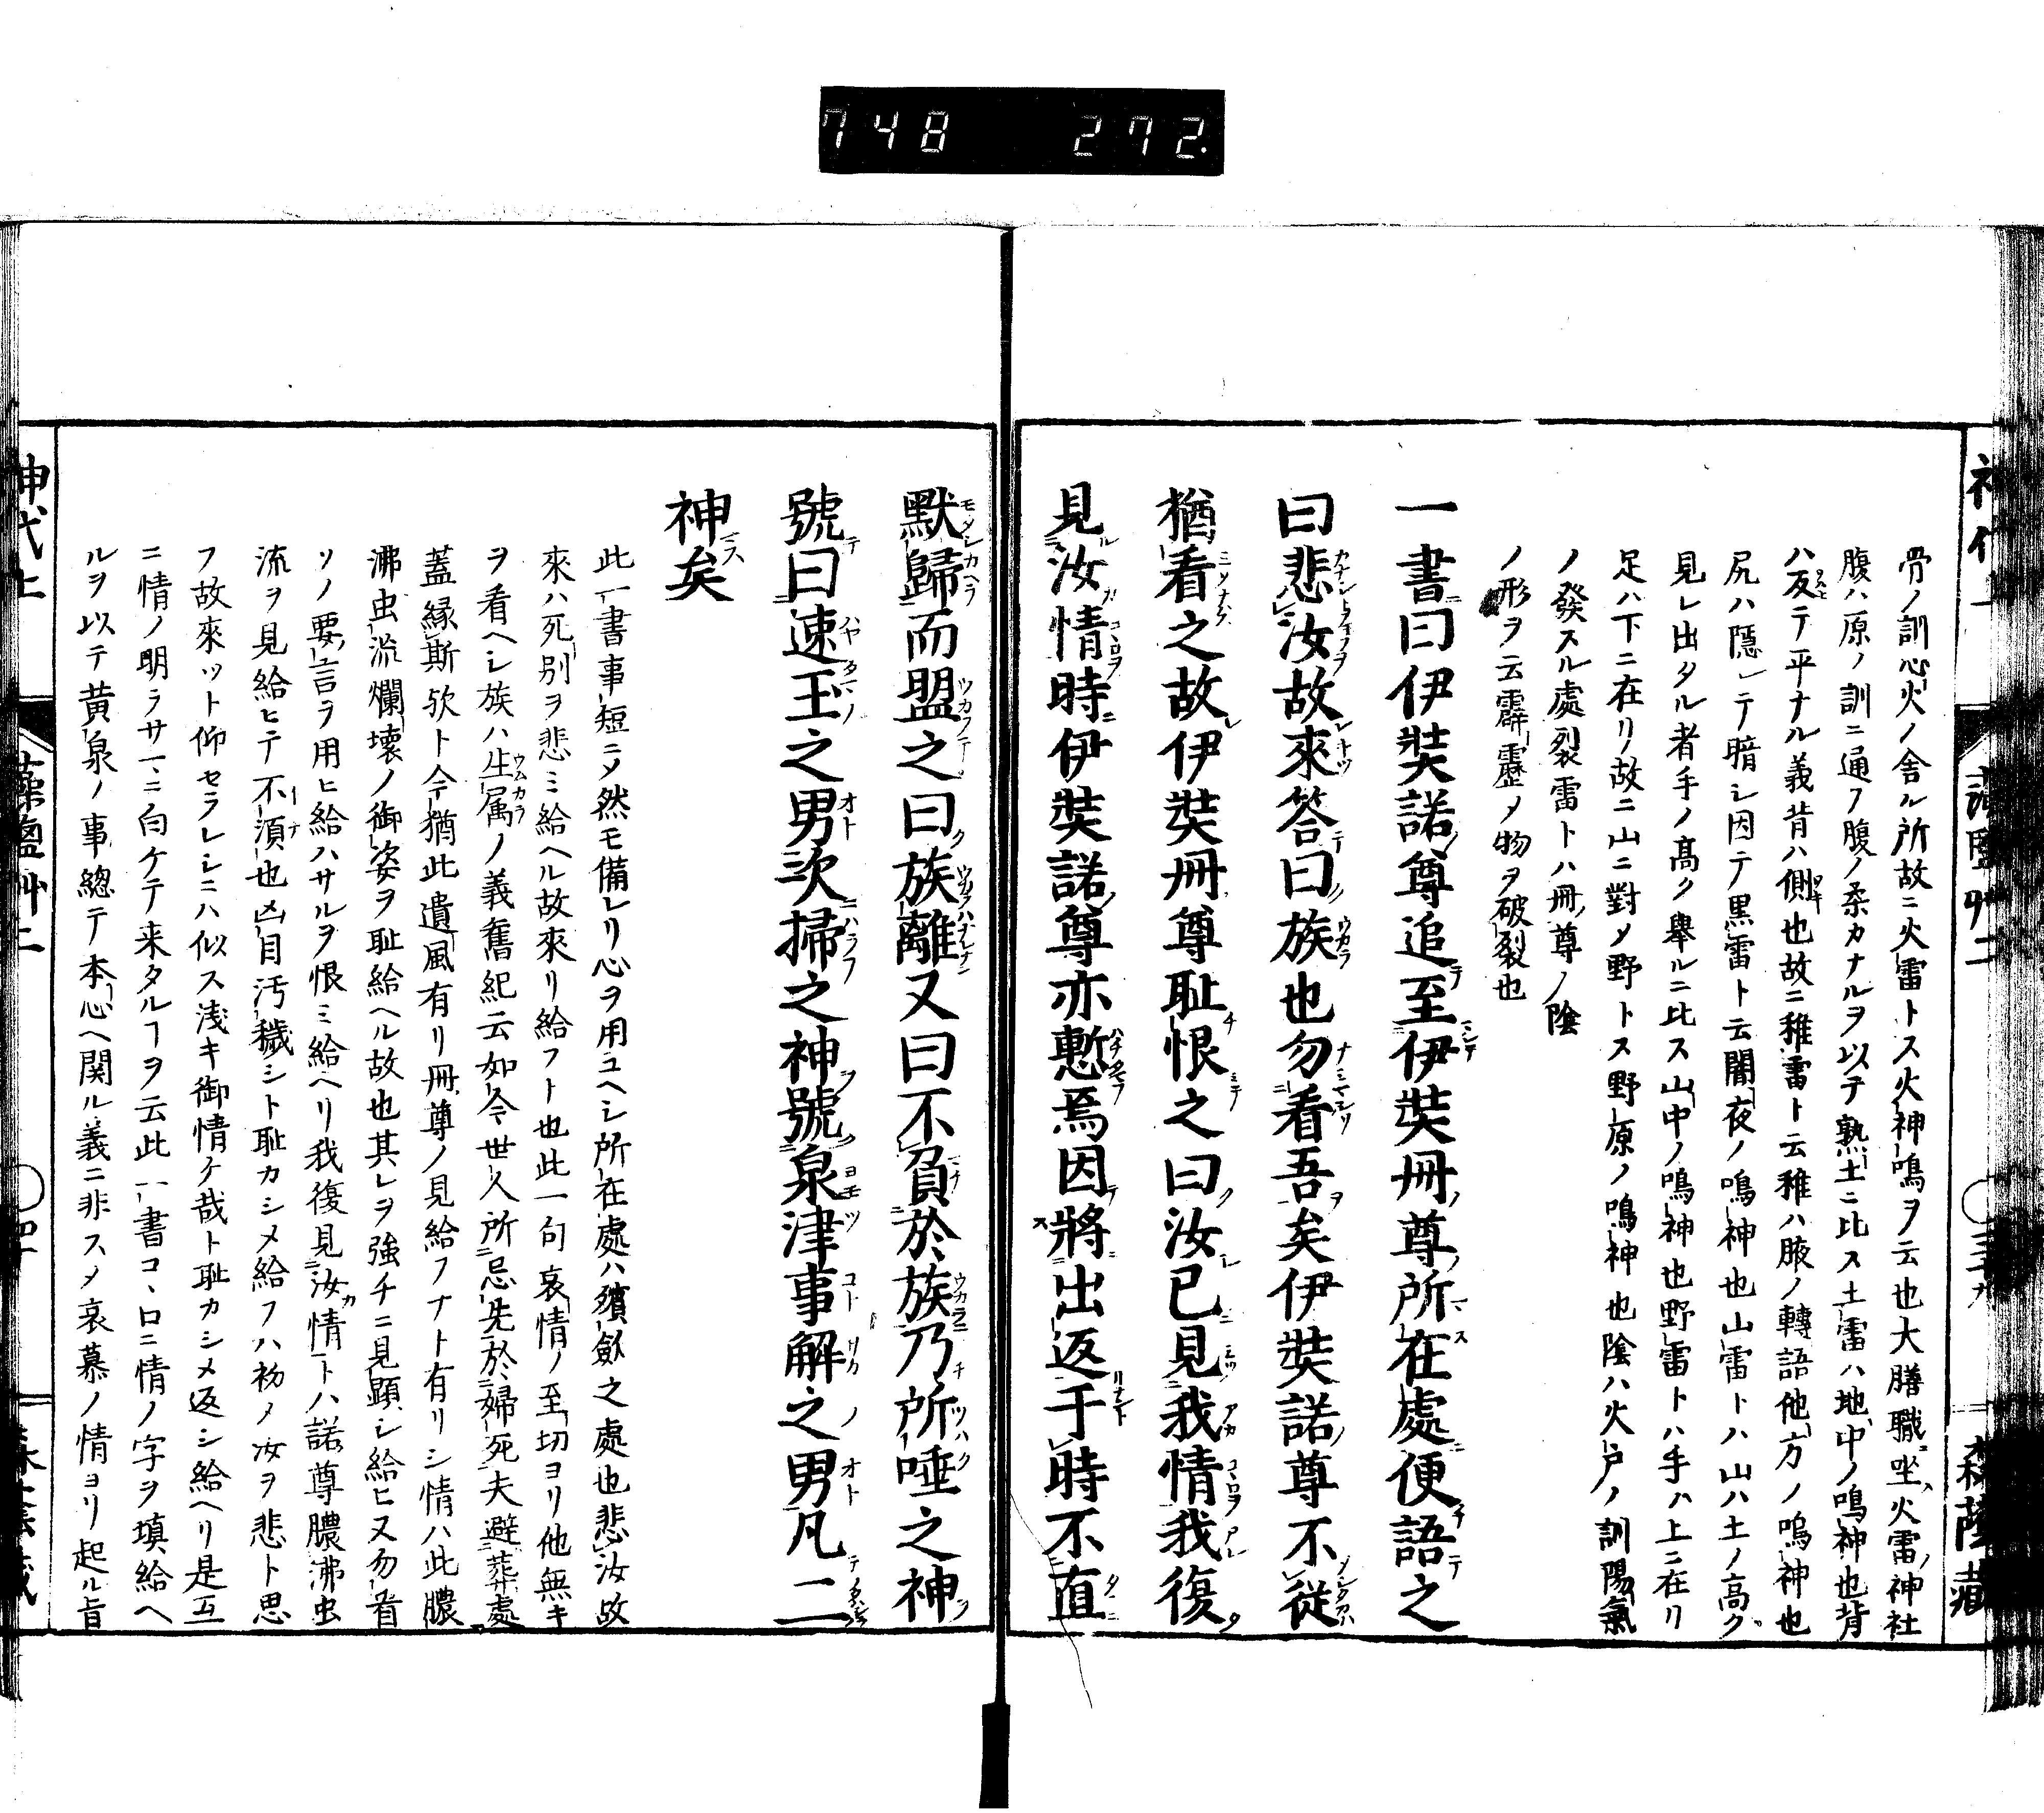 748 272
骨ノ訓心火ノ舎ル所故ニ火雷トス火神鳴ヲ云也大膳職坐火雷神社
腹ハ原ノ訓ニ通フ腹ノ柔カナルヲ以テ熟土ニ比ス土雷ハ地中ノ鳴神也背
ハ反テ平ナル義背ハ側也故ニ稚雷ト云稚ハ腋ノ轉語他方ノ鳴神也
尻ハ隱テ暗シ因テ黒雷ト云闇夜ノ鳴神也山雷トハ山ハ土ノ高ク
見レ出タル者手ノ高ク舉ルニ比ス山中ノ鳴神也野雷トハ手ハ上ニ在リ
足ハ下ニ在リ故ニ山ニ對メ野トス野原ノ鳴神也陰ハ火戸ノ訓陽氣
ノ發スル處裂雷トハ冊尊ノ陰
ノ形ヲ云霹靂ノ物ヲ破裂也
一書曰伊奘諾尊追至伊奘冊尊所在處便語之
曰悲汝故來答曰族也勿看吾矣伊奘諾尊不從
猶看之故伊奘冊尊耻恨之曰汝已見我情我復
見汝情時伊奘諾尊亦慙焉因將出返于時不直
默歸而盟之曰族離又曰不負於族乃所唾之神
號曰速玉之男次掃之神號泉津事解之男凡二
神矣
此一書事短ニメ然モ備レリ心ヲ用ユヘシ所在處ハ殯斂之處也悲汝故
來ハ死別ヲ悲ミ給ヘル故來リ給フト也此一句哀情ノ至切ヨリ他無キ
ヲ看ヘシ族ハ生属ノ義舊紀云如今世人所忌先於婦死夫避葬處
蓋縁斯歟ト今猶此遺風有リ冊尊ノ見給フナト有リシ情ハ此膿
沸虫流爛壊ノ御姿ヲ耻給ヘル故也其レヲ強チニ見顕シ給ヒ又勿看
ソノ要言ヲ用ヒ給ハサルヲ恨ミ給ヘリ我復見汝情トハ諾尊膿沸虫
流ヲ見給ヒテ不須也凶目汚穢シト耻カシメ給フハ初メ汝ヲ悲ト思
フ故來ツト仰セラレシニハ似ス浅キ御情ケ哉ト耻カシメ返シ給ヘリ是互
ニ情ノ明ラサ一ニ白ケテ来タルヿヲ云此一書コヽロニ情ノ字ヲ填給ヘ
ルヲ以テ黄泉ノ事總テ本心ヘ関ル義ニ非スメ哀慕ノ情ヨリ起ル旨
神代上
藻鹽艸二